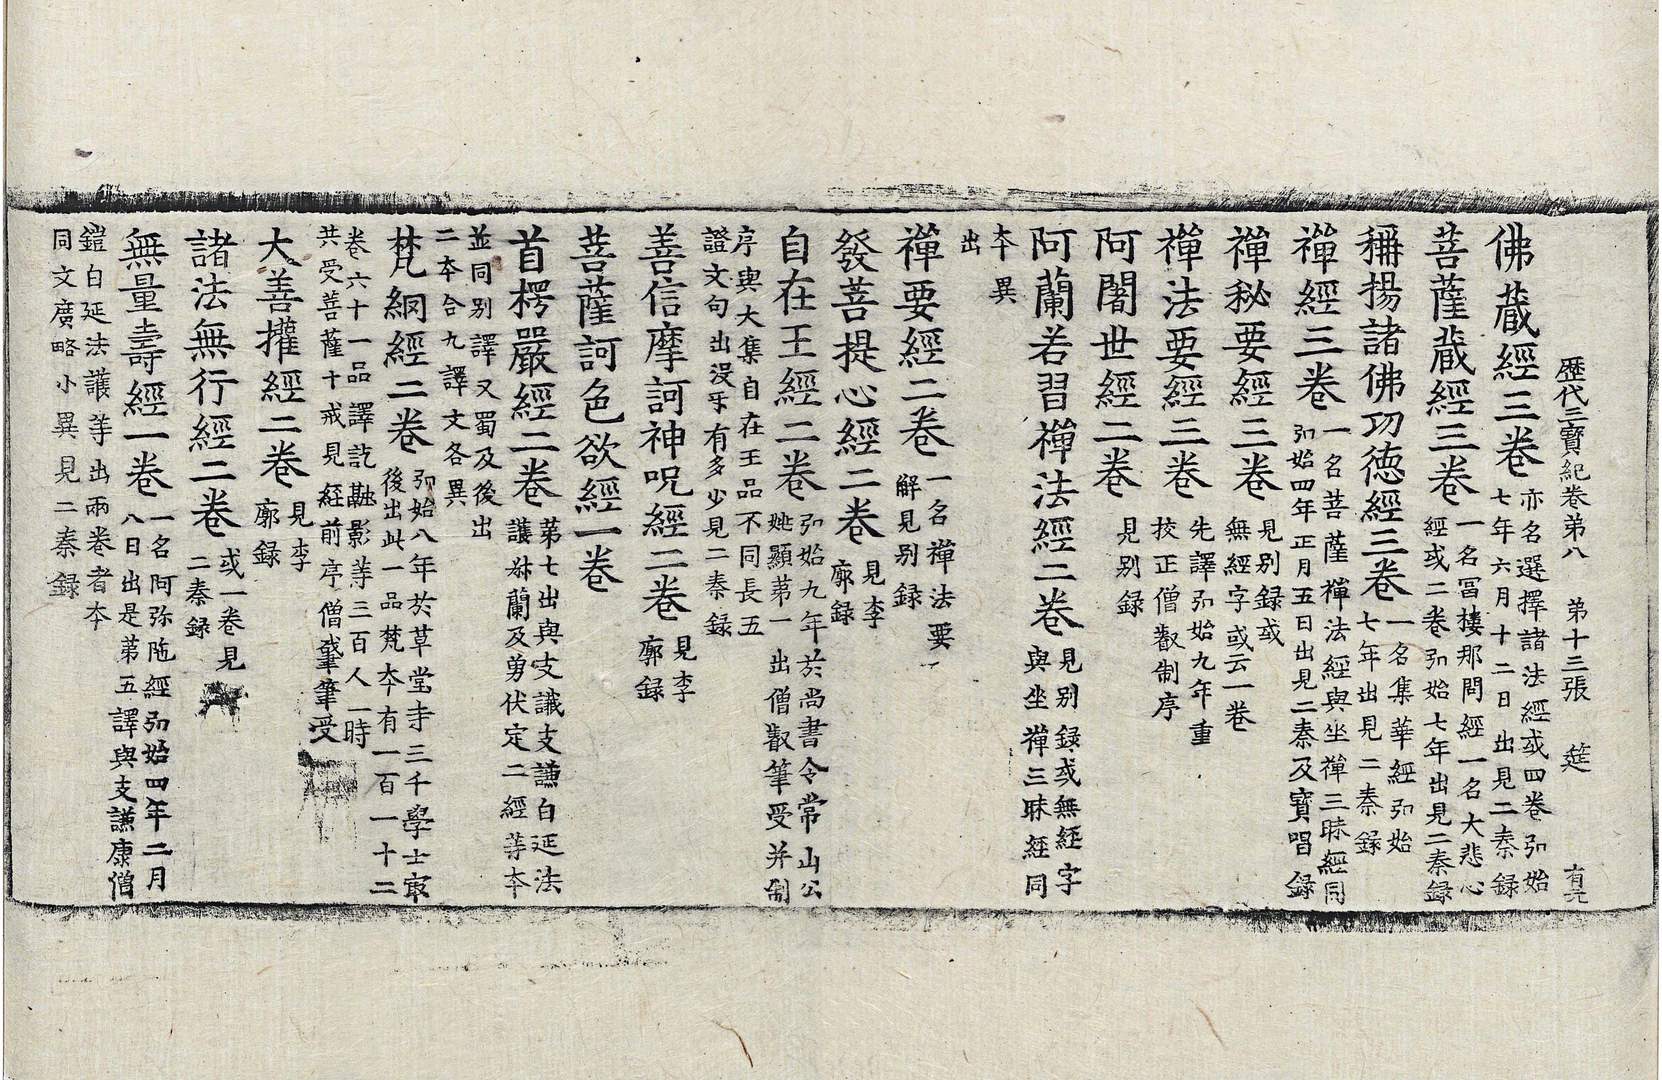 歷代三寶紀卷第八　第十三張　筵
佛蔵經三卷 亦名選擇諸法經或四卷弘始
七年六月十二日出見二秦錄
菩薩蔵經三卷 一名冨樓那問經一名大悲心
經或二卷弘始七年出見二秦錄
稱揚諸佛功徳經三卷 一名集華經弘始
七年出見二秦錄
禪經三卷 一名菩薩禪法經與坐禪三昧經同
弘始四年正月五日出見二秦及寶唱錄
禪秘要經三卷 見別錄或
無經字或云一卷
禪法要經三卷 先譯弘始九年重
校正僧叡制序
阿闍世經二卷 見別錄
阿蘭若習禪法經二卷 見別錄或無經字
與坐禪三昧經同
夲異
出
禪要經二卷 一名禪法要
解見別錄
發菩提心經二卷 見李
廓錄
自在王經二卷 弘始九年於尚書令常山公
姚顯第一出僧叡筆受并制
序與大集自在王品不同長五
證文句出沒乎有多少見二秦錄
善信摩訶神呪經二卷 見李
廓錄
菩薩訶色欲經一卷
首楞嚴經二卷 第七出與支讖支謙白延法
護竺蘭及勇伏定二經等夲
並同別譯又蜀及後出
二夲合九譯文各異
梵網經二卷 弘始八年於草堂寺三千學士㝡
後出此一品梵夲有一百一十二
卷六十一品譯訖融影等三百人一時
共受菩薩十戒見經前序僧肇筆受
大善權經二卷 見李
廓錄
諸法無行經二卷 或一卷見
二秦錄
無量壽經一卷 一名阿弥陁經弘始四年二月
八日出是第五譯與支謙康僧
鎧白延法護等出兩卷者夲
同文廣略小異見二秦錄